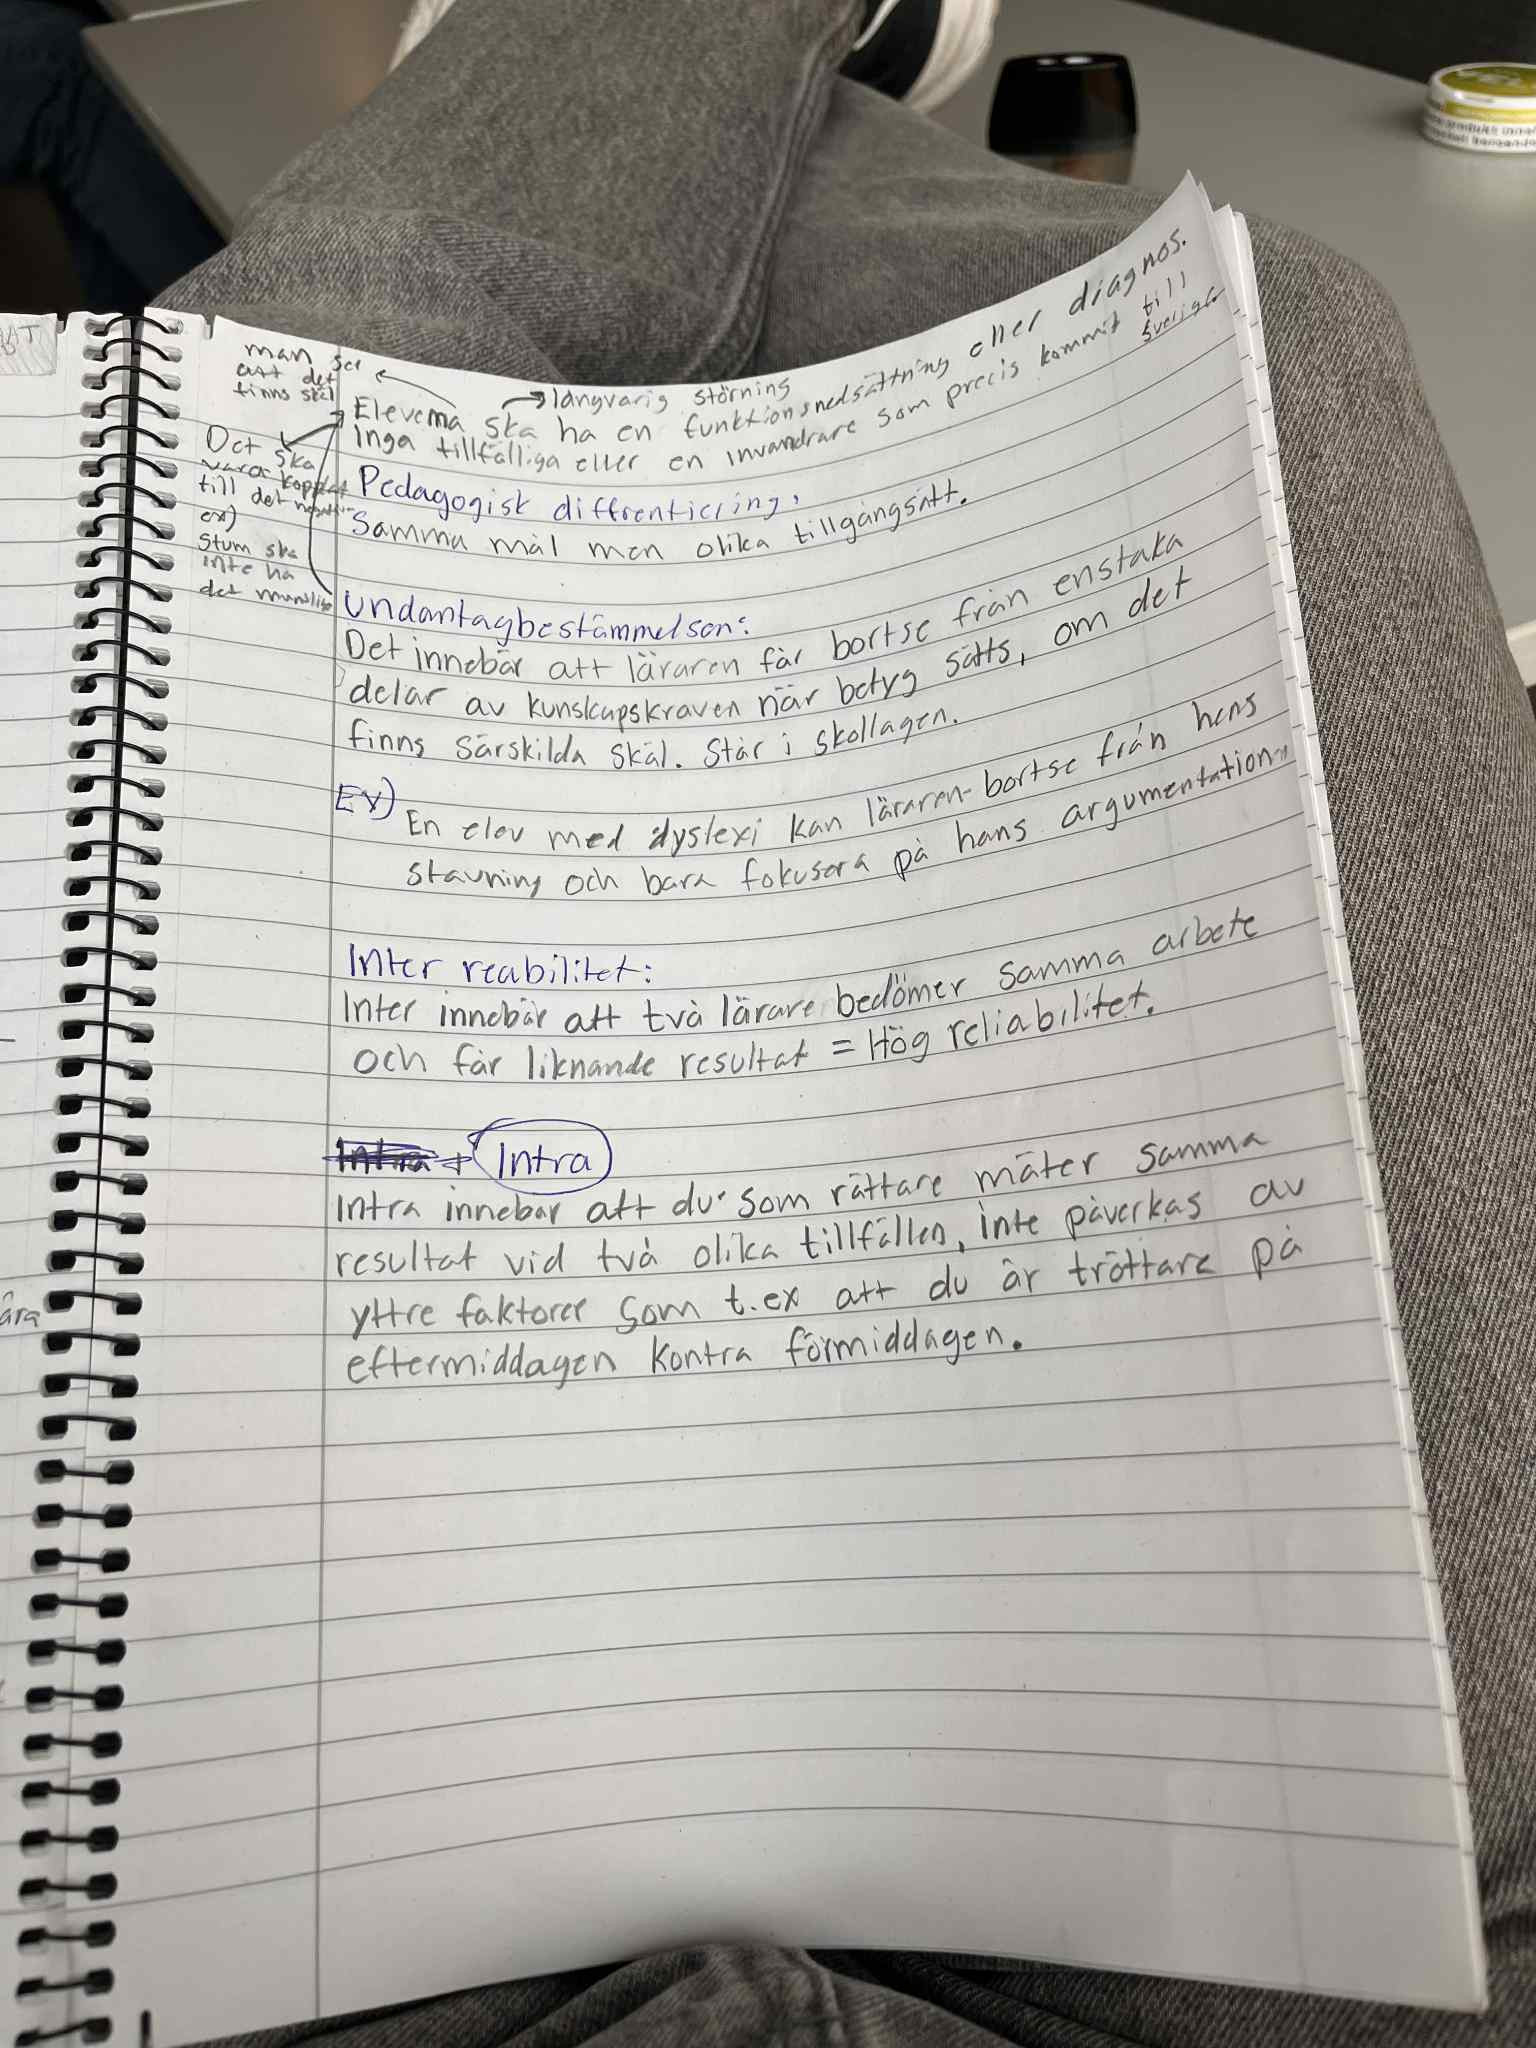 man ser
att det
finns skäl
→ långvarig störning
Eleverna ska ha en funktionsnedsättning eller diagnos.
Inga tillfälliga eller en invandrare som precis kommit till
Sverige
Det ska
vara kopplat
till det
ex)
Stum ska
inte ha
det
Pedagogisk diffrentiering,
Samma mål men olika tillgångsätt.
Undantagbestämmelsen:
Det innebär att läraren får bortse från enstaka
delar av kunskapskraven när betyg sätts, om det
finns särskilda skäl. Står i skollagen.
EX)
En elev med dyslexi kan läraren bortse från hans
stavning och bara fokusera på hans argumentation
Inter reabilitet:
Inter innebär att två lärare bedömer samma arbete
och får liknande resultat = Hög reliabilitet.
Intra
Intra innebar att du som rättare mäter samma
resultat vid två olika tillfällen, inte påverkas av
yttre faktorer som t.ex att du är tröttare på
eftermiddagen kontra förmiddagen.
ära